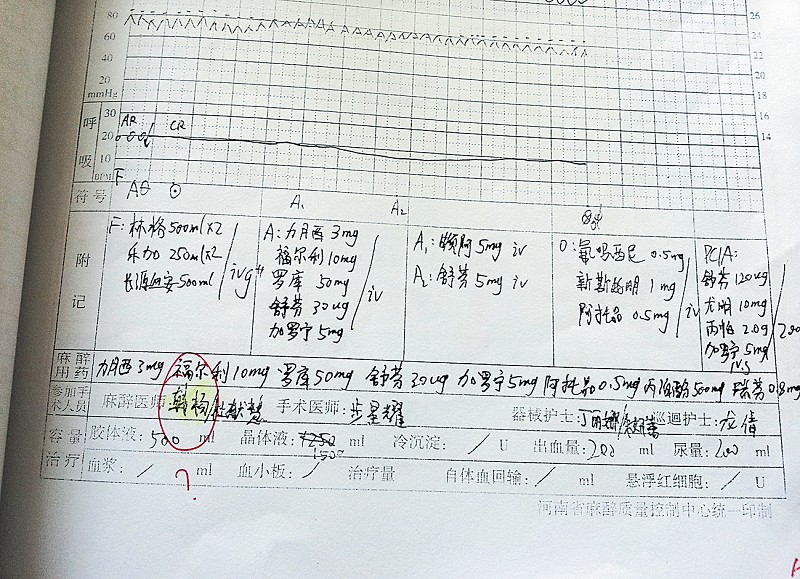 80
60
40
20
mmHg
26
24
22
20
18
16
14
呼吸
30
20
10
BPM
AR
CR
F
符号
AΘ
⊙
A₁
A₂
附记
F: 林格500ml×2
乐加 250ml×2
长源血安500ml
ivgtt
A: 力月西 3mg
福尔利10mg
罗库 50mg
舒芬 30ug
加罗宁 5mg
iv
A₁: 顿阿5mg iv
A₂: 舒芬 5mg iv
O: 氟吗西尼 0.5mg
新斯的明 1mg
阿托品 0.5mg
iv
PCIA:
舒芬 120ug
尤明 10mg
加罗宁 5mg
N.S
麻醉用药 力月西3mg 福尔利10mg 罗库50mg 舒芬30ug 加罗宁5mg 阿托品0.5mg 丙泊酚500mg 瑞芬0.8mg
参加手术人员 麻醉医师: 韩杨/杜献慧 手术医师: 步星耀 器械护士: 巡迴护士: 龙倩
容量治疗 胶体液: 500 ml 晶体液: 1250 1500 冷沉淀: / U 出血量: 200 ml 尿量: 200 ml
血浆: / ml 血小板: / 治疗量 自体血回输: / ml 悬浮红细胞: / U
?
河南省麻醉质量控制中心统一印制